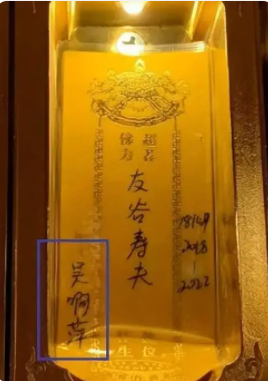 佛力
超荐
友谷寿夫
18149
2018
-
2022
吴啊萍